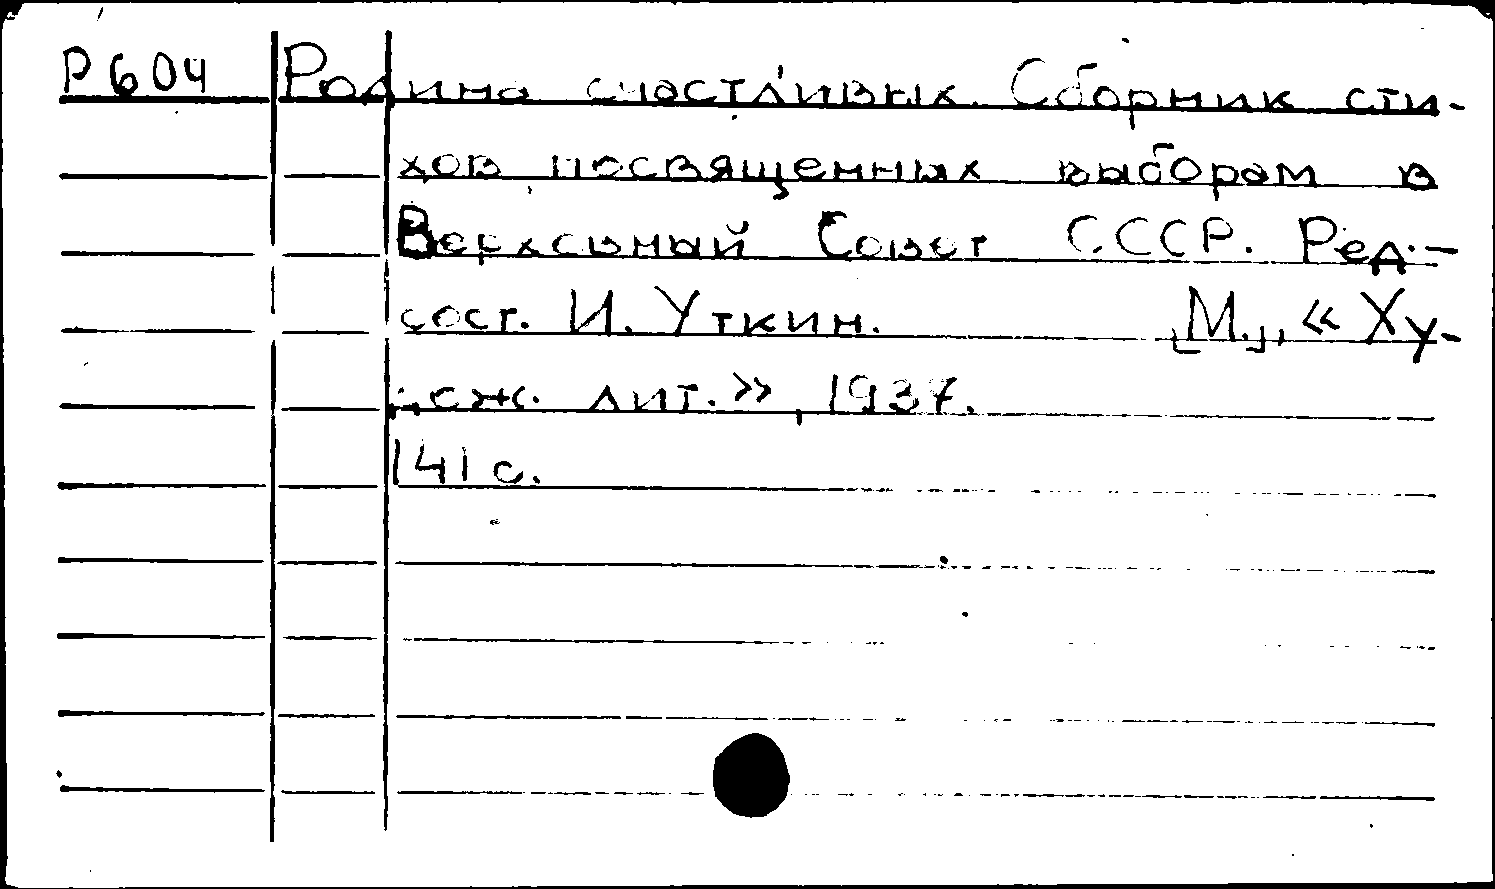 Р604 Родина счастливых. Сборник сти-
хов посвященных выборам в
Верховный Совет СССР. Ред.-
сост. И. Уткин. [М.], «Ху-
дож. лит.», 1937.
141 с.